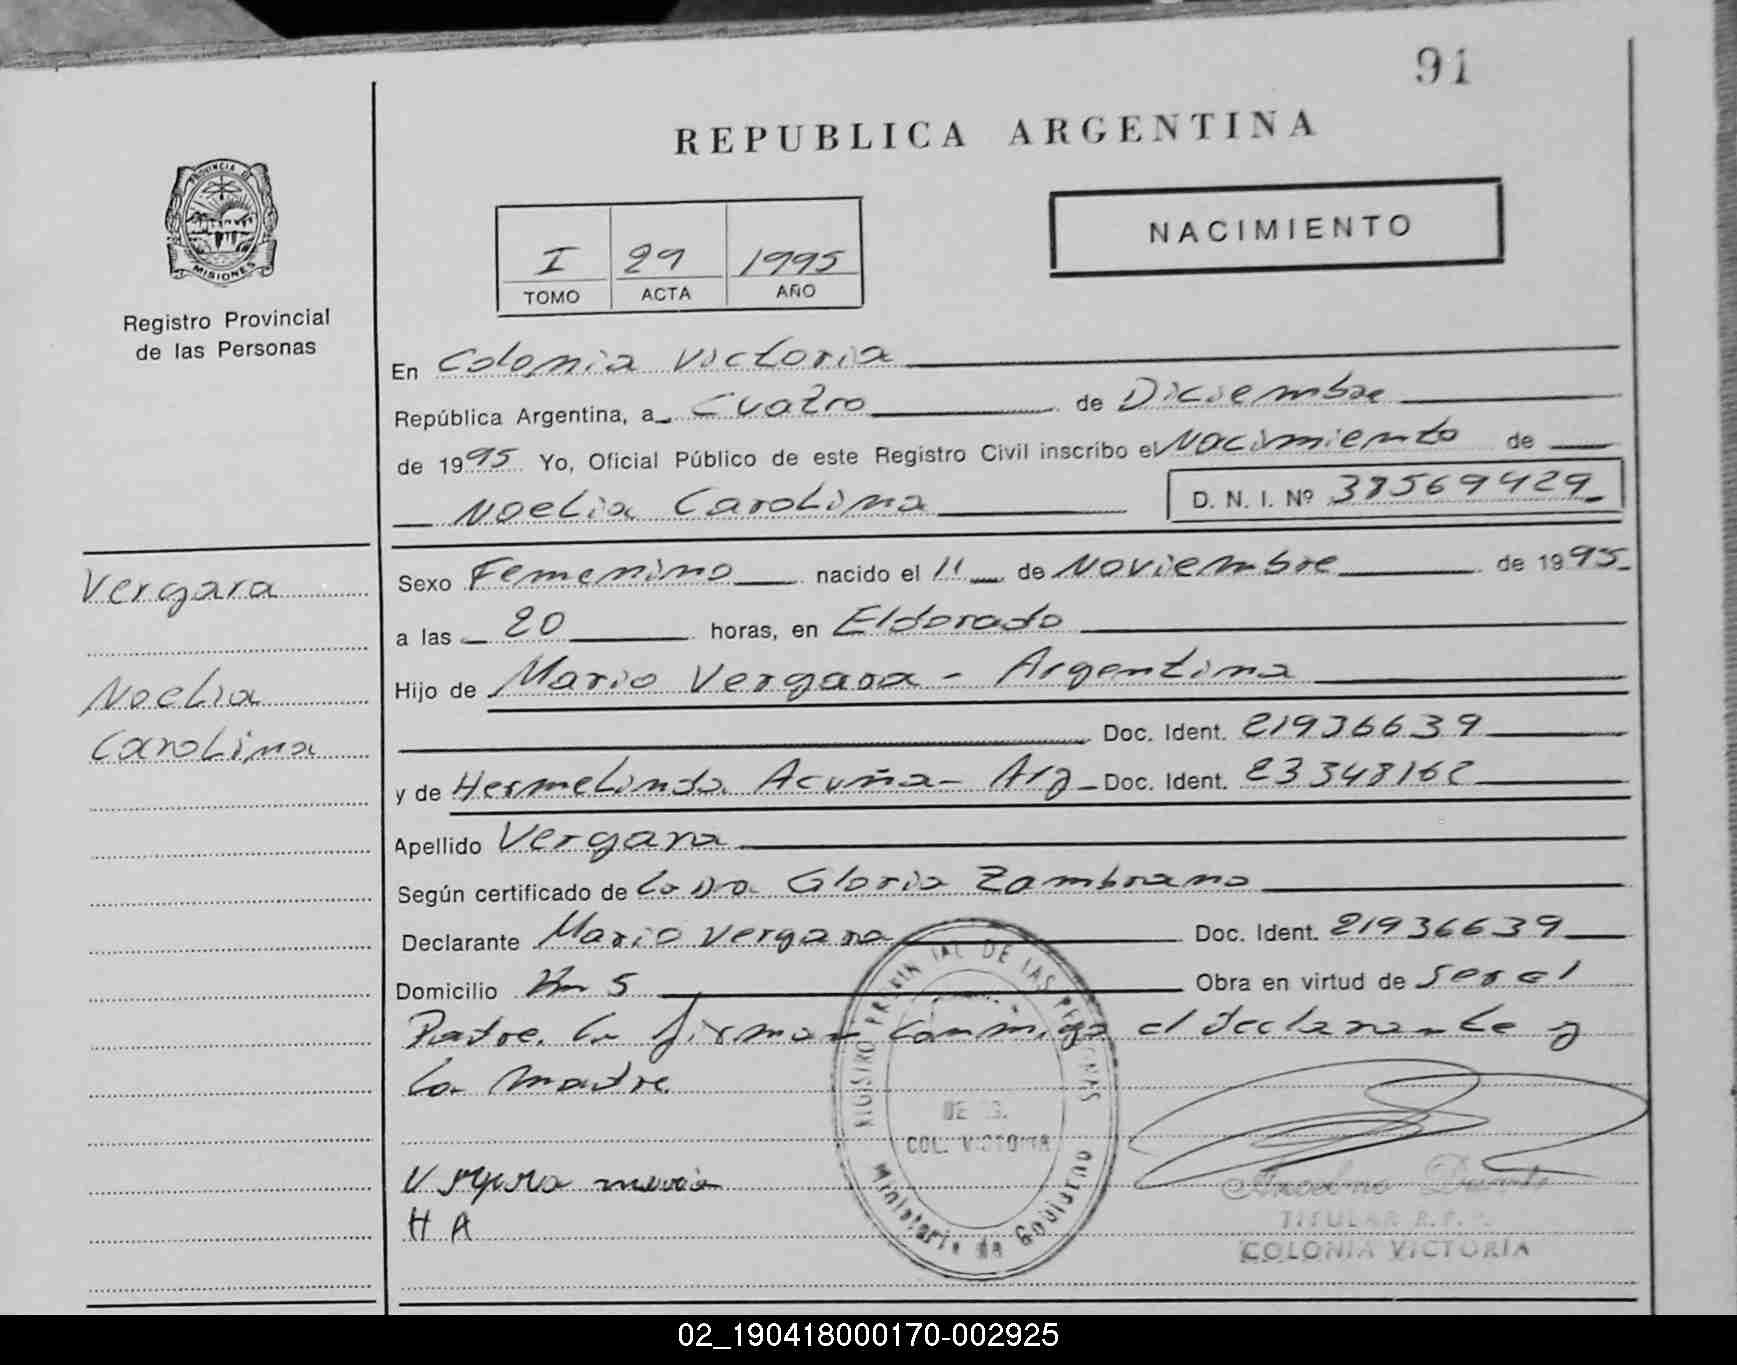 91
REPUBLICA ARGENTINA
PROVINCIA DE
MISIONES
Registro Provincial
de las Personas
NACIMIENTO
I 29 1995
TOMO ACTA AÑO
En Colonia Victoria
República Argentina, a Cuatro de Diciembre
de 1995 Yo, Oficial Público de este Registro Civil inscribo el Nacimiento de
Noelia Carolina D. N. I. Nº 38569429
Vergara
Noelia
Carolina
Sexo Femenino nacido el 11 de Noviembre de 1995
a las 20 horas, en Eldorado
Hijo de Mario Vergara - Argentina
Doc. Ident. 21936639
y de Hermelinda Acuña - Arg Doc. Ident. 23348162
Apellido Vergara
Según certificado de la Dra Gloria Zambrano
Declarante Mario Vergara Doc. Ident. 21936639
Domicilio Km 5 Obra en virtud de ser el
Padre. La firman conmigo el declarante y
la madre
REGISTRO PROVINCIAL DE LAS PERSONAS
COL. VICTORIA
Ministerio de Gobierno
Vergara mario
H A
Anselmo Duarte
TITULAR R.P.
COLONIA VICTORIA
02_190418000170-002925